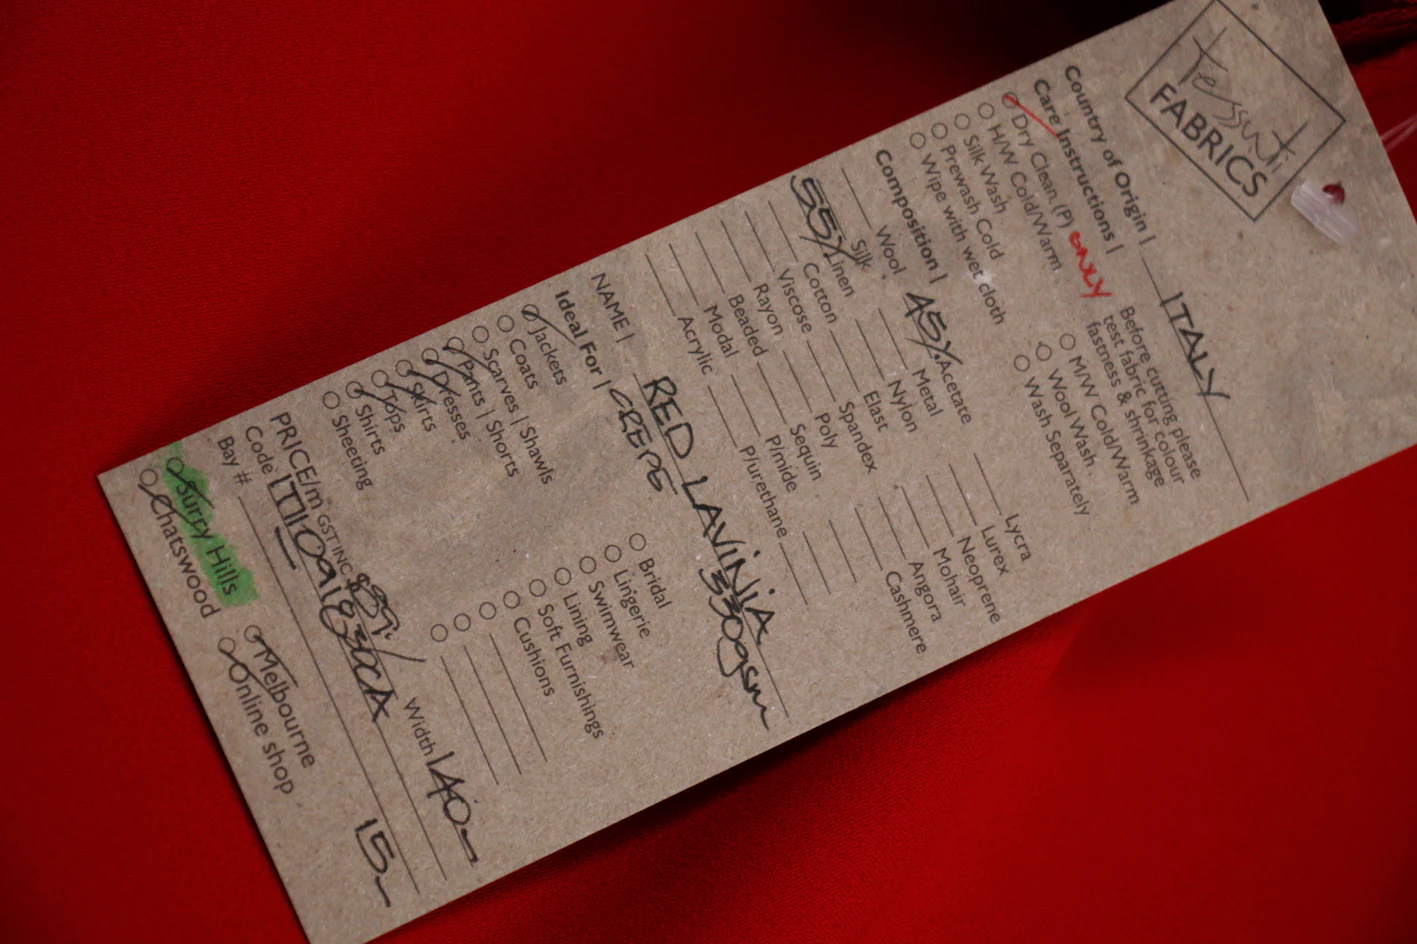 tessuti
FABRICS
Country of Origin | ITALY
Care Instructions |
Before cutting please
test fabric for colour
fastness & shrinkage
Dry Clean (P) ONLY
H/W Cold/Warm
Silk Wash
Prewash Cold
Wipe with wet cloth
M/W Cold/Warm
Wool Wash
Wash Separately
Composition |
Wool
Silk
55% Linen
Cotton
Viscose
Rayon
Beaded
Modal
Acrylic
45% Acetate
Metal
Nylon
Elast
Spandex
Poly
Sequin
P/mide
P/urethane
Lycra
Lurex
Neoprene
Mohair
Angora
Cashmere
NAME | RED LAVINIA
CREPE 330gsm
Ideal For |
Jackets
Coats
Scarves | Shawls
Pants | Shorts
Dresses
Skirts
Tops
Shirts
Sheeting
Bridal
Lingerie
Swimwear
Lining
Soft Furnishings
Cushions
PRICE/m GST INC Width 140-
Code
Bay # 15-
Surry Hills
Chatswood
Melbourne
Online shop